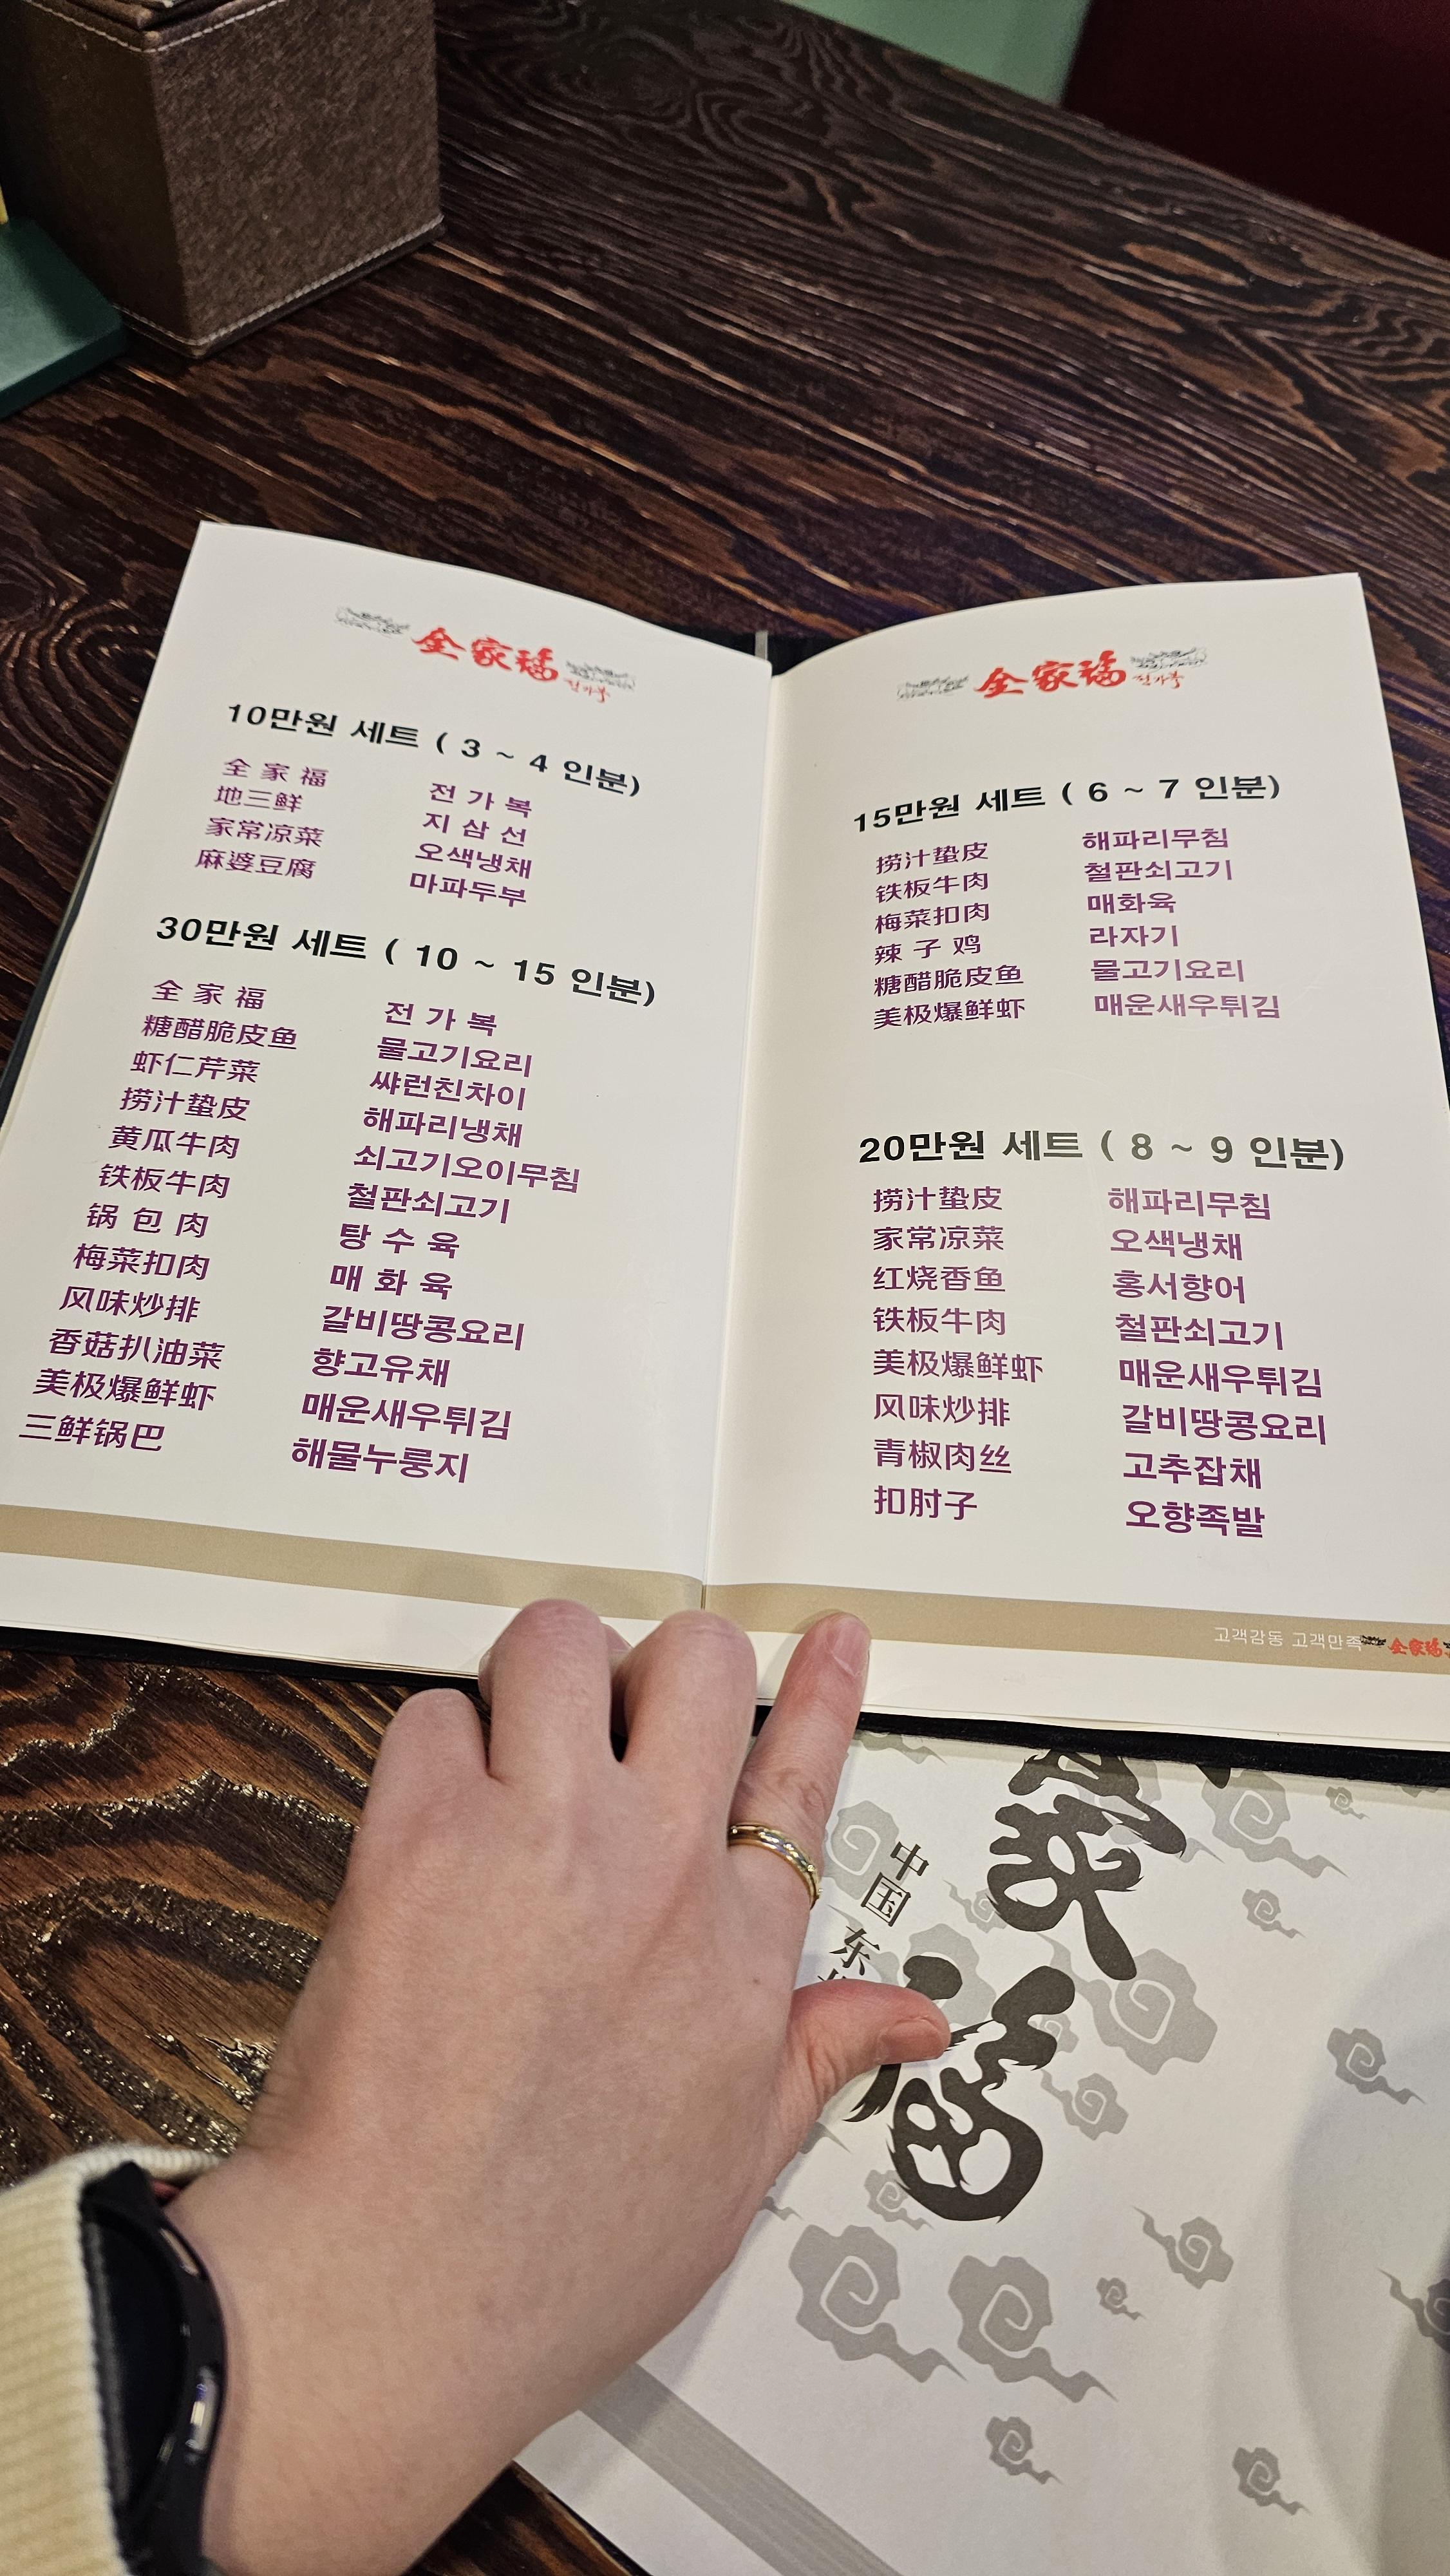 全家福
전가복
10만원 세트 ( 3 ~ 4 인분)
全 家 福 전 가 복
地三鲜 지 삼 선
家常凉菜 오색냉채
麻婆豆腐 마파두부
30만원 세트 ( 10 ~ 15 인분)
全 家 福 전 가 복
糖醋脆皮鱼 물고기요리
虾仁芹菜 쌰런친차이
捞汁蛰皮 해파리냉채
黄瓜牛肉 쇠고기오이무침
铁板牛肉 철판쇠고기
锅 包 肉 탕 수 육
梅菜扣肉 매 화 육
风味炒排 갈비땅콩요리
香菇扒油菜 향고유채
美极爆鲜虾 매운새우튀김
三鲜锅巴 해물누룽지
全家福
전가복
15만원 세트 ( 6 ~ 7 인분)
捞汁蛰皮 해파리무침
铁板牛肉 철판쇠고기
梅菜扣肉 매화육
辣 子 鸡 라자기
糖醋脆皮鱼 물고기요리
美极爆鲜虾 매운새우튀김
20만원 세트 ( 8 ~ 9 인분)
捞汁蛰皮 해파리무침
家常凉菜 오색냉채
红烧香鱼 홍서향어
铁板牛肉 철판쇠고기
美极爆鲜虾 매운새우튀김
风味炒排 갈비땅콩요리
青椒肉丝 고추잡채
扣肘子 오향족발
고객감동 고객만족 全家福
家福
中国 东